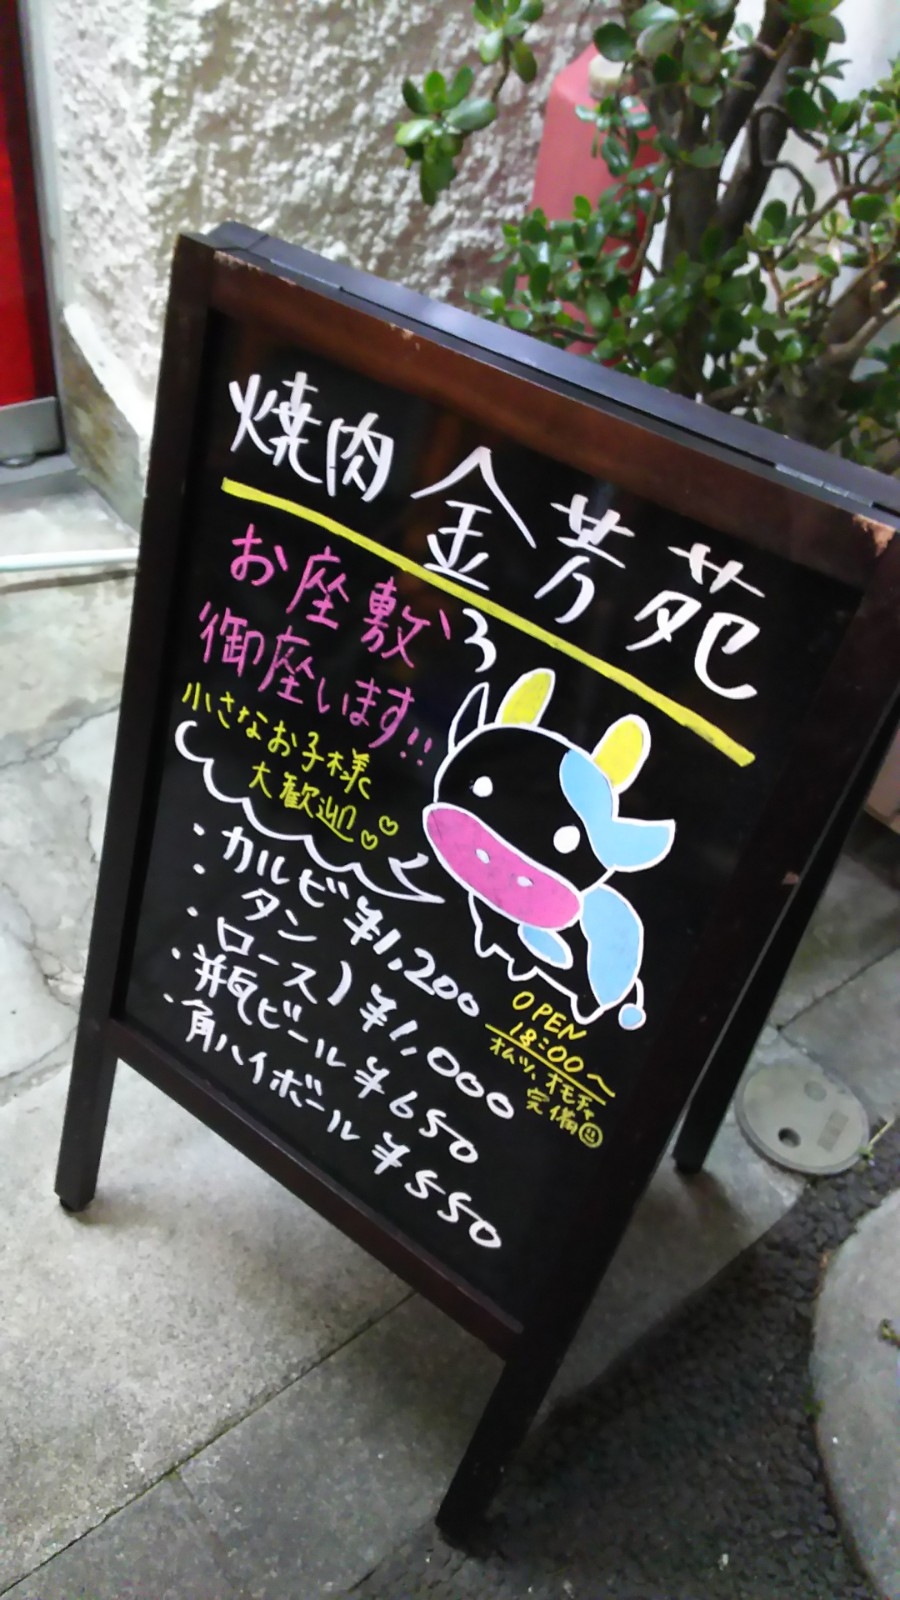 焼肉 金芳苑
お座敷
御座います!!
小さなお子様
大歓迎♡♡
・カルビ ¥1,200
・タン
・ロース ) ¥1,000
・瓶ビール ¥650
・角ハイボール ¥550
OPEN
18:00〜
オムツ、オモチャ
完備